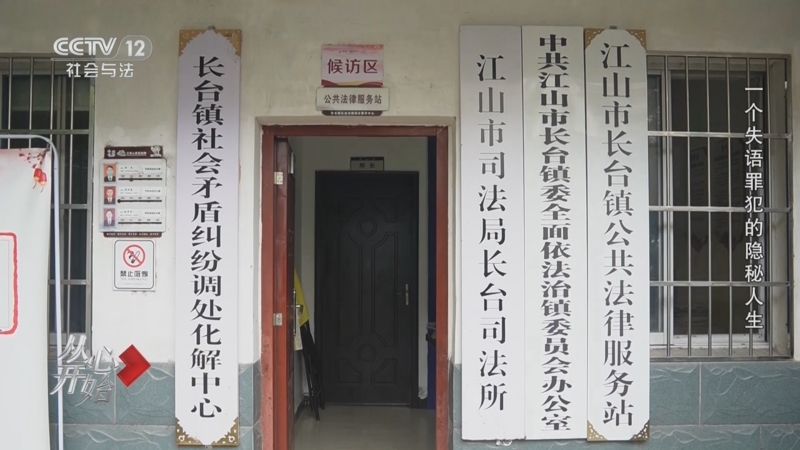 CCTV 12
社会与法
长台镇社会矛盾纠纷调处化解中心
候访区
公共法律服务站
禁止吸烟
江山市司法局长台司法所
中共江山市长台镇委全面依法治镇委员会办公室
江山市长台镇公共法律服务站
一个失语罪犯的隐秘人生
从心开始